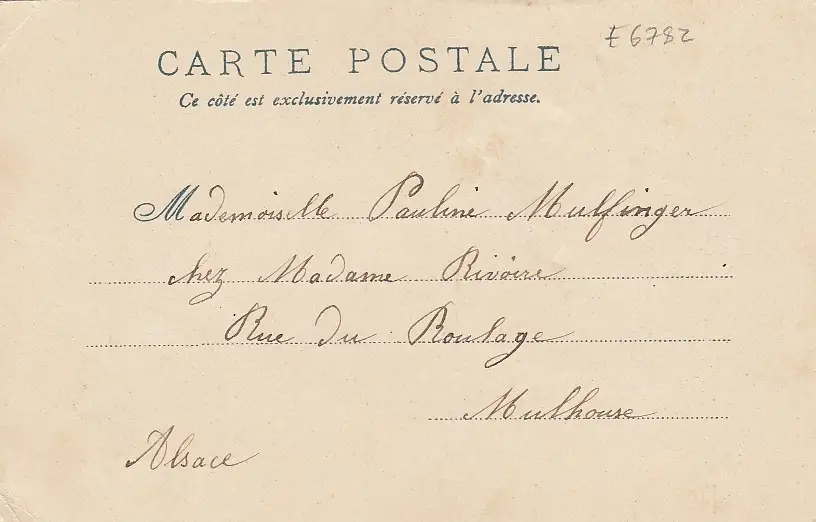 E6782
CARTE POSTALE
Ce côté est exclusivement réservé à l'adresse.
Mademoiselle Pauline Mulfinger
chez Madame Rivoire
Rue du Roulage
Mulhouse
Alsace